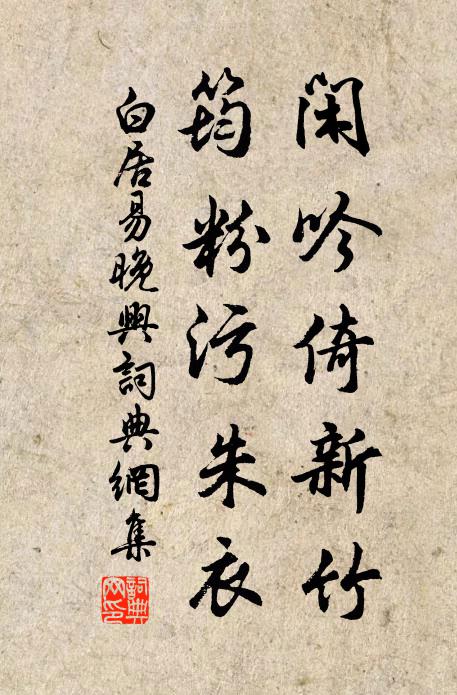 閑吟倚新竹
筠粉污朱衣
白居易晚興詞典網集
詞典